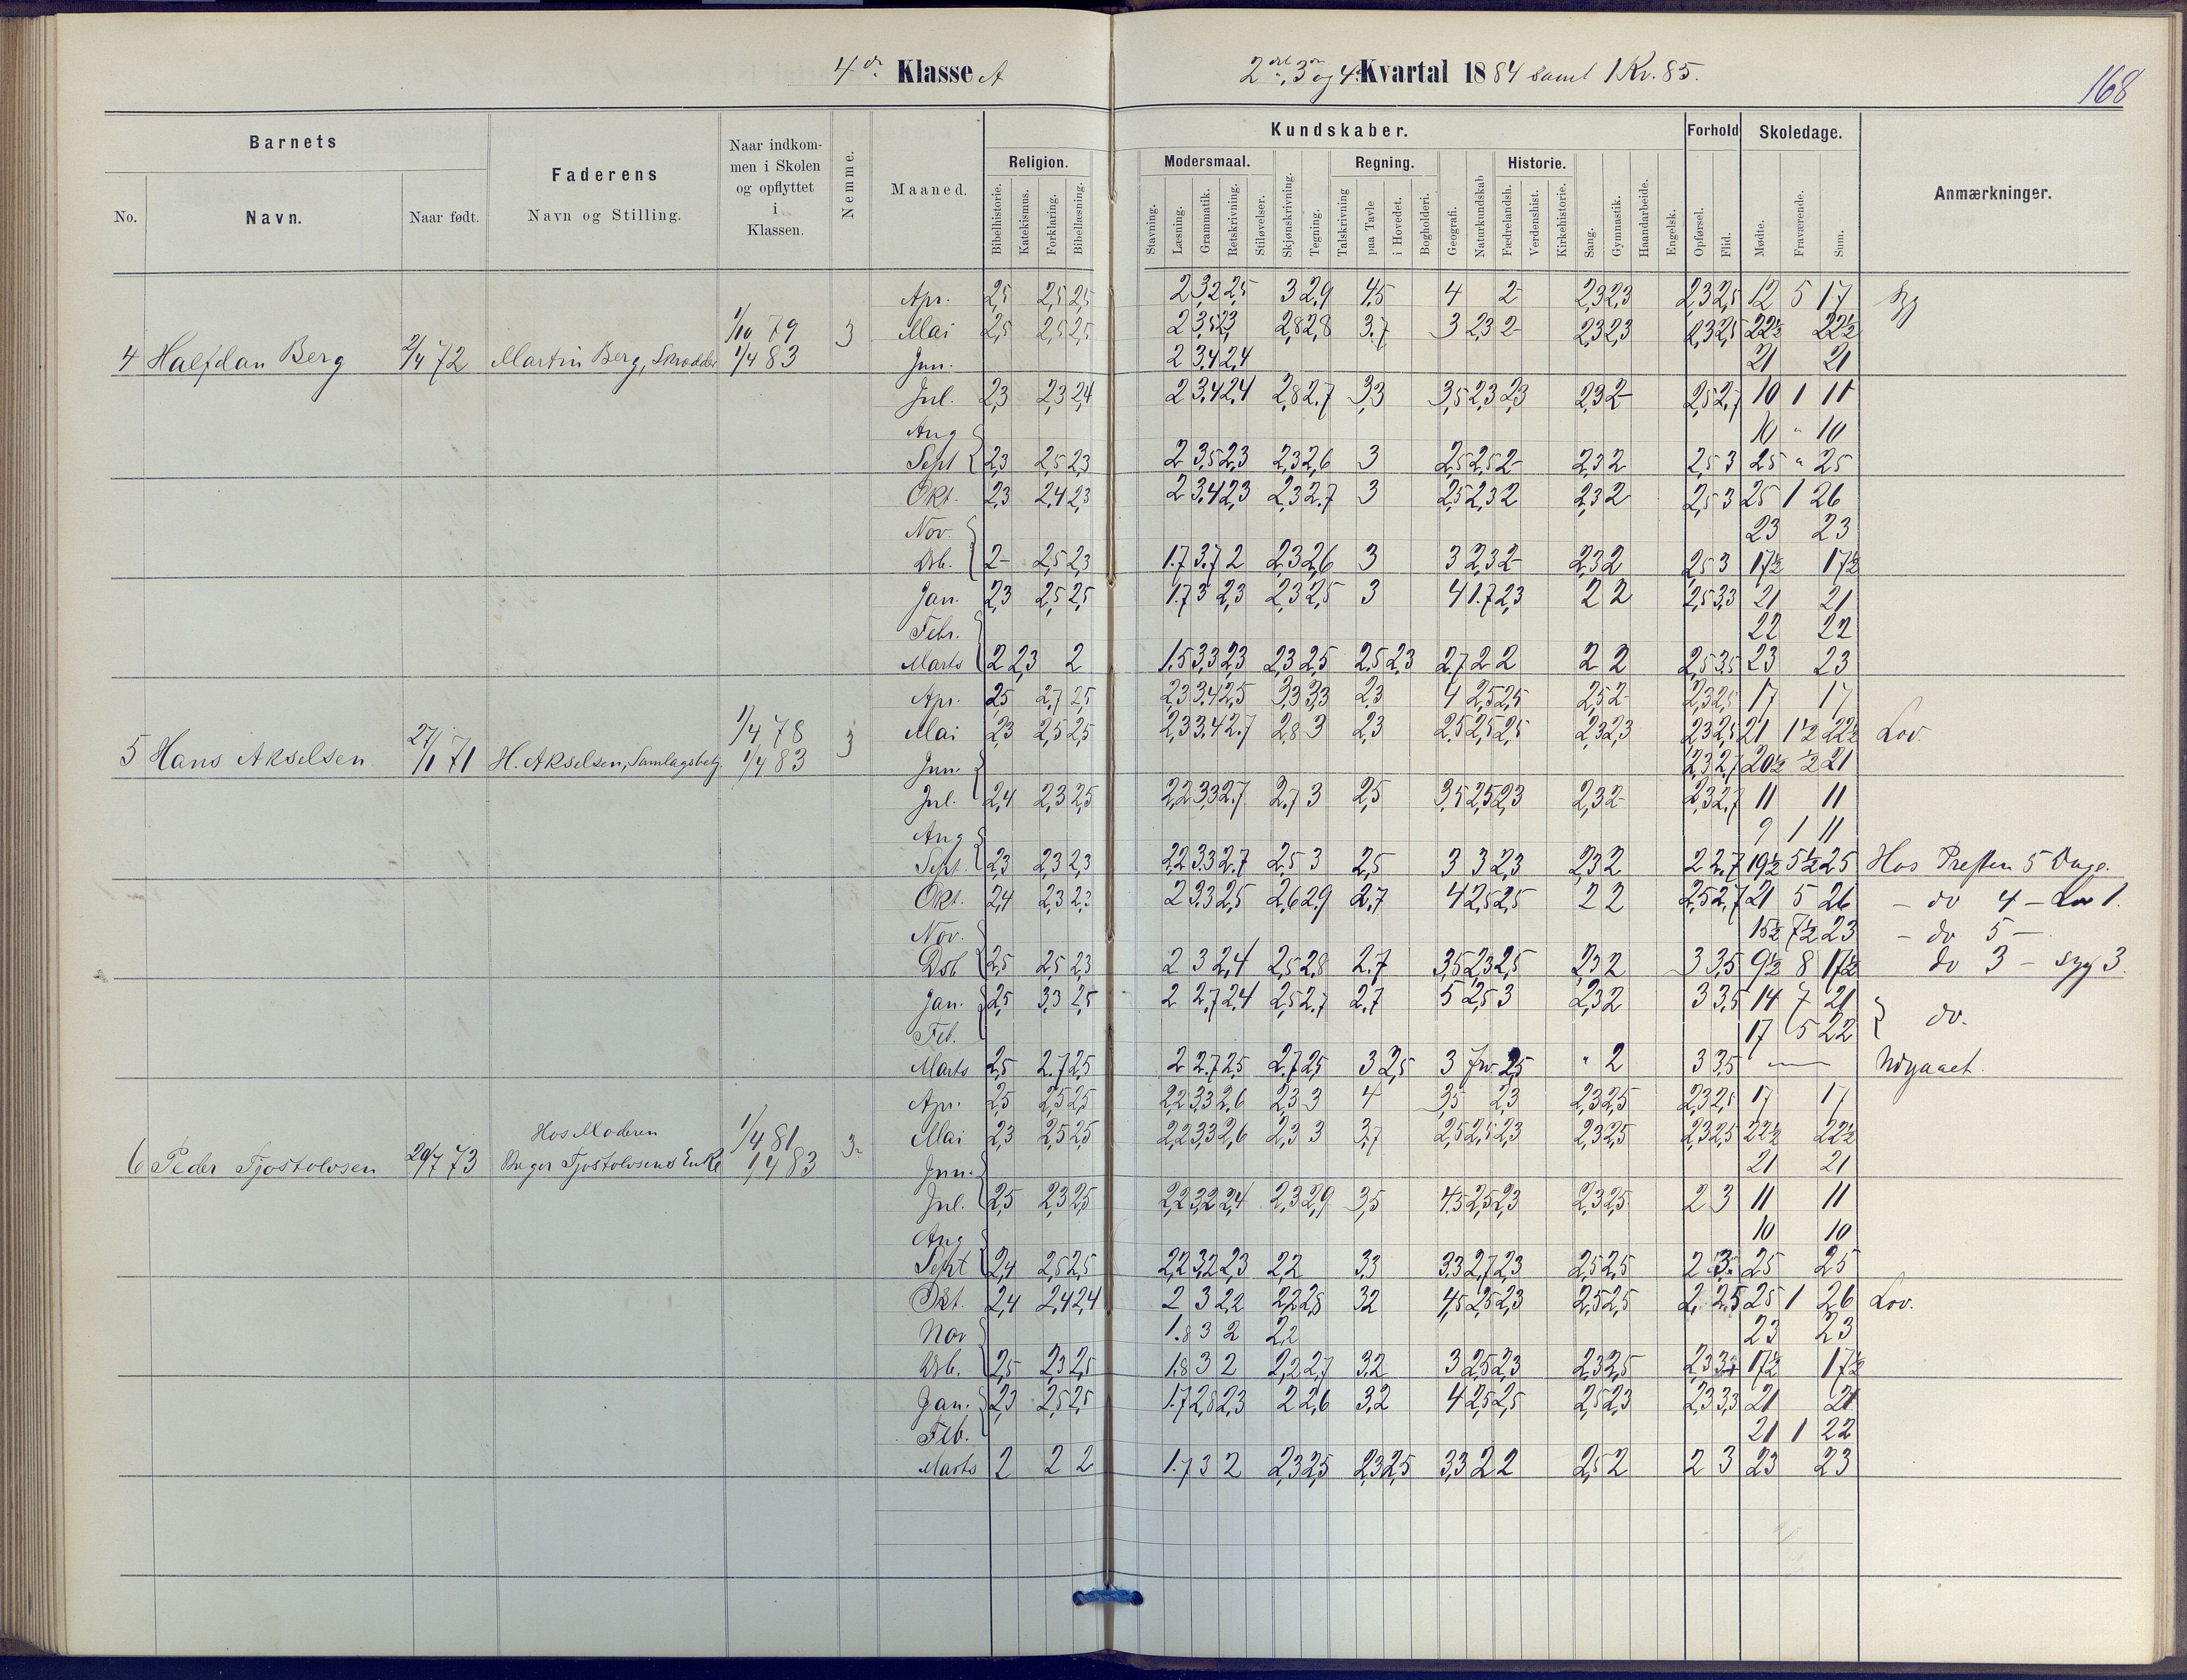 4de Klasse A
2det, 3die og 4de Kvartal 1884 samt 1 Kv. 85.
168
Barnets
No.
Navn.
Naar født.
Faderens
Navn og Stilling.
Naar indkom-
men i Skolen
og opflyttet
i
Klassen.
Nemme.
Maaned.
Kundskaber.
Religion.
Bibelhistorie.
Katekismus.
Forklaring.
Bibellæsning.
Modersmaal.
Stavning.
Læsning.
Grammatik.
Retskrivning.
Stiløvelser.
Skjønskrivning.
Tegning.
Regning.
Talskrivning
paa Tavle
i Hovedet.
Bogholderi.
Geografi.
Naturkundskab
Historie.
Fædrelandsh.
Verdenshist.
Kirkehistorie.
Sang.
Gymnastik.
Haandarbeide.
Engelsk.
Forhold
Opførsel.
Flid.
Skoledage.
Mødte.
Fraværende.
Sum.
Anmærkninger.
4 Halfdan Berg 2/4 72 Martin Berg, Skrædder 1/10 79 1/4 83 3
Apr. 2,5 2,5 2,5 2 3,2 2,5 3 2,9 4,5 4 2- 2,3 2,3 2,3 2,5 12 5 17 syg
Mai 2,5 2,5 2,5 2 3,5 2,3 2,8 2,8 3.7 3 2,3 2- 2,3 2,3 2,3 2,5 22½ 22½
Jun. 2 3,4 2,4 21 21
Jul. 2,3 2,3 2,4 2 3,4 2,4 2,8 2,7 3,3 3,5 2,3 2,3 2,3 2- 2,5 2,7 10 1 11
Aug 10 " 10
Sept 2,3 2,5 2,3 2 3,5 2,3 2,3 2,6 3 2,5 2,5 2- 2,3 2 2,5 3 25 " 25
Okt. 2,3 2,4 2,3 2 3,4 2,3 2,3 2,7 3 2,5 2,3 2 2,3 2 2,5 3 25 1 26
Nov. 23 23
Dsb. 2- 2,5 2,3 1.7 3.7 2 2,3 2,6 3 3 2,3 2- 2,3 2 2,5 3 17½ 17½
Jan. 2,3 2,5 2,5 1.7 3 2,3 2,3 2,5 3 4 1.7 2,3 2 2 2,5 3,3 21 21
Febr. 22 22
Marts 2 2,3 2 1,5 3,3 2,3 2,3 2,5 2,5 2,3 2.7 2 2 2 2 2,5 3,5 23 23
5 Hans Akselsen 27/1 71 H. Akselsen, Samlagsbetj. 1/4 78 1/4 83 3
Apr. 2,5 2,7 2,5 2,3 3,4 2,5 3,3 3,3 2,3 4 2,5 2,5 2,5 2- 2,3 2,5 17 17
Mai 2,3 2,5 2,5 2,3 3,4 2.7 2,8 3 2,3 2,5 2,5 2,5 2,3 2,3 2,3 2,5 21 1½ 22½ Lov.
Jun. 2,3 2,7 20½ ½ 21
Jul. 2,4 2,3 2,5 2,2 3,3 2.7 2.7 3 2,5 3,5 2,5 2,3 2,3 2- 2,3 2,7 11 11
Aug 9 1 11
Sept. 2,3 2,3 2,3 2,2 3.3 2.7 2,5 3 2,5 3 3 2,3 2,3 2 2 2,7 19½ 5½ 25 Hos Presten 5 Dage.
Okt. 2,4 2,3 2,3 2 3,3 2,5 2,6 2,9 2,7 4 2,5 2,5 2 2 2,5 2,7 21 5 26 - do 4 - Lov 1.
Nov. 15½ 7½ 23 - do 5 -
Dsb 2,5 2,5 2,3 2 3 2,4 2,5 2,8 2.7 3,5 2,3 2,5 2,3 2 3 3,5 9½ 8 17½ do 3 - syg 3.
Jan. 2,5 3,3 2,5 2 2,7 2,4 2,5 2,7 2.7 5 2,5 3 2,3 2 3 3,5 14 7 21 do.
Feb. 17 5 22
Marts 2,5 2.7 2,5 2 2.7 2,5 2.7 2,5 3 2,5 3 2,5 " 2 3 3,5 — Udgaaet.
6 Peder Tjostolvsen 29/7 73 Hos Moderen
Birger Tjostolvsens Enke 1/4 81 1/4 83 3-
Apr. 2,5 2,5 2,5 2,2 3,3 2,6 2,3 3 4 3,5 2,3 2,3 2,5 2,3 2,5 17 17
Mai 2,3 2,5 2,5 2,2 3,3 2,6 2,3 3 3,7 2,5 2,5 2,3 2,3 2,5 2,3 2,5 22½ 22½
Jun. 21 21
Jul. 2,5 2,3 2,5 2,2 3,2 2,4 2,3 2,9 3,5 4.5 2,5 2,3 2,3 2,5 2 3 11 11
Aug 10 10
Sept 2,4 2,5 2,5 2,2 3,2 2,3 2,2 3,3 3,3 2,7 2,3 2,5 2,5 2 3 25 25
Okt. 2,4 2,4 2,4 2 3 2,2 2,2 2,8 3,2 4,5 2,5 2,3 2,5 2,5 2 2,5 25 1 26 Lov.
Nov 1.8 3 2 2,2 23 23
Dsb. 2,5 2,3 2,5 1.8 3 2 2,2 2,7 3,2 3 2,5 2,3 2,3 2,5 2,3 3 17½ 17½
Jan. 2,3 2,5 2,5 1.7 2,8 2,3 2 2,6 3,2 4 2,5 2,5 2,5 2,3 2,3 3,3 21 21
Feb. 21 1 22
Marts 2 2 2 1.7 3 2 2,3 2,5 2,3 2,5 3,3 2 2 2,5 2 2 3 23 23